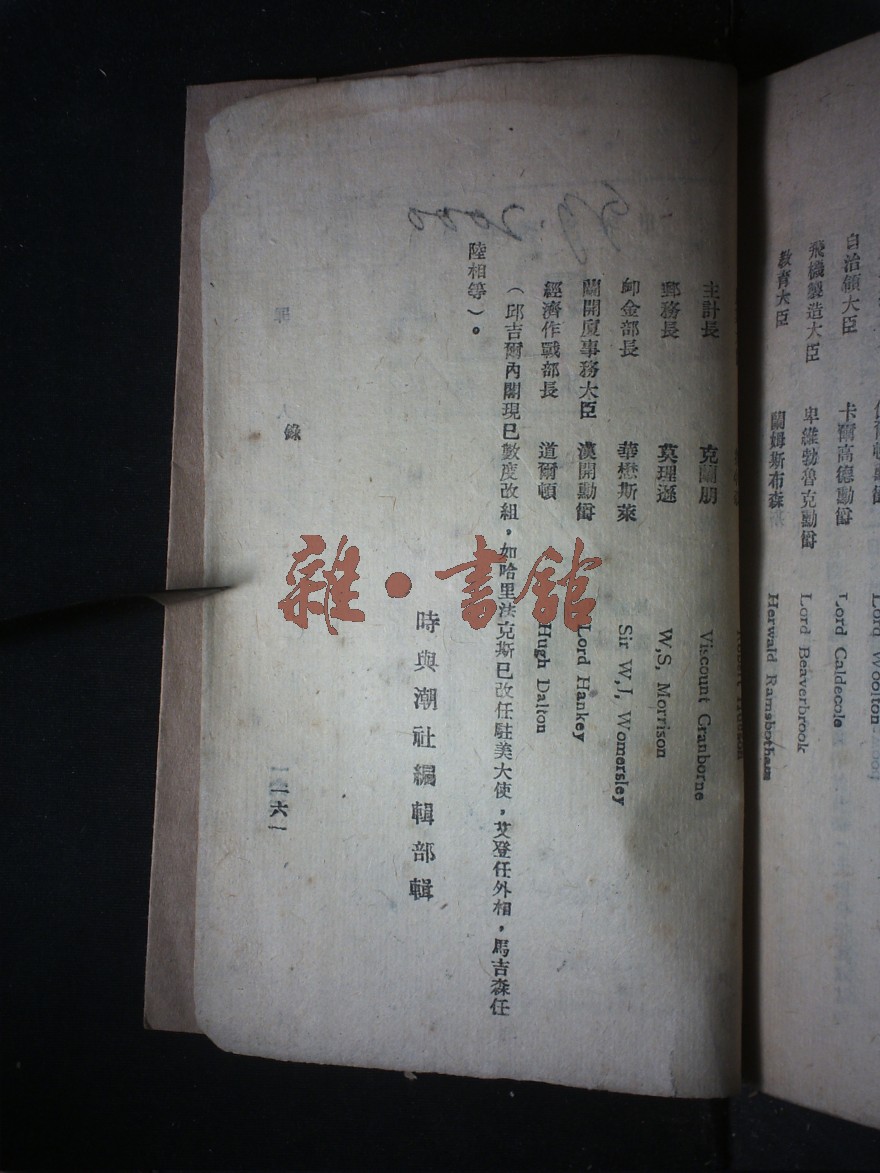 自治領大臣 卡爾高德勳爵 Lord Caldecote
飛機製造大臣 卑維勃魯克勳爵 Lord Beaverbrook
教育大臣 蘭姆斯布森 Herwald Ramsbotham
主計長 克蘭朋 Viscount Cranborne
郵務長 莫理遜 W,S, Morrison
卹金部長 華懋斯萊 Sir W,J, Womersley
蘭開廈事務大臣 漢開勳爵 Lord Hankey
經濟作戰部長 道爾頓 Hugh Dalton
（邱吉爾內閣現已數度改組，如哈里法克斯已改任駐美大使，艾登任外相，馬吉森任
陸相等）。
時與潮社編輯部輯
錄
雜·書館
2000